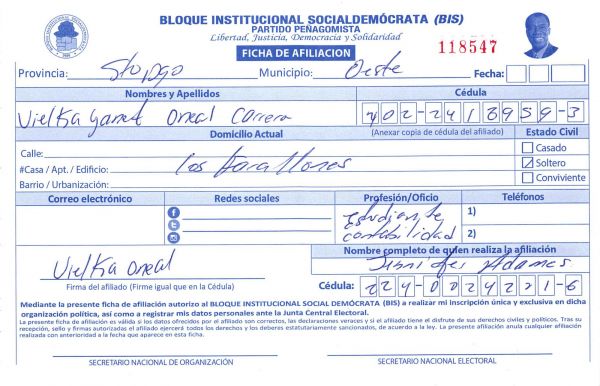 BLOQUE INSTITUCIONAL SOCIALDEMÓCRATA (BIS)
PARTIDO PEÑAGOMISTA
Libertad, Justicia, Democracia y Solidaridad
FICHA DE AFILIACION
118547
Provincia: Sto Dgo Municipio: Oeste Fecha:
Nombres y Apellidos Cédula
Vielka Oneal Carrera 402-2418959-3
Domicilio Actual (Anexar copia de cédula del afiliado) Estado Civil
Calle: Casado
#Casa / Apt. / Edificio: Los Farallones Soltero
Barrio / Urbanización: Conviviente
Correo electrónico Redes sociales Profesión/Oficio Teléfonos
Estudiante 1)
contabilidad 2)
Nombre completo de quien realiza la afiliación
Vielka Oneal Jennifer Adames
Firma del afiliado (Firme igual que en la Cédula) Cédula: 224-0024221-6
Mediante la presente ficha de afiliación autorizo al BLOQUE INSTITUCIONAL SOCIAL DEMÓCRATA (BIS) a realizar mi inscripción única y exclusiva en dicha
organización política, así como a registrar mis datos personales ante la Junta Central Electoral.
La presente ficha de afiliación es válida si los datos ofrecidos por el afiliado son correctos, las declaraciones veraces y si el afiliado tiene el disfrute de sus derechos civiles y políticos. Tras su
recepción, sello y firmas autorizadas el afiliado ejercerá todos los derechos y los deberes estatutariamente sancionados, de acuerdo a la ley. La presente afiliación anula cualquier afiliación
realizada con anterioridad a la fecha que aparece en esta ficha.
SECRETARIO NACIONAL DE ORGANIZACIÓN SECRETARIO NACIONAL ELECTORAL